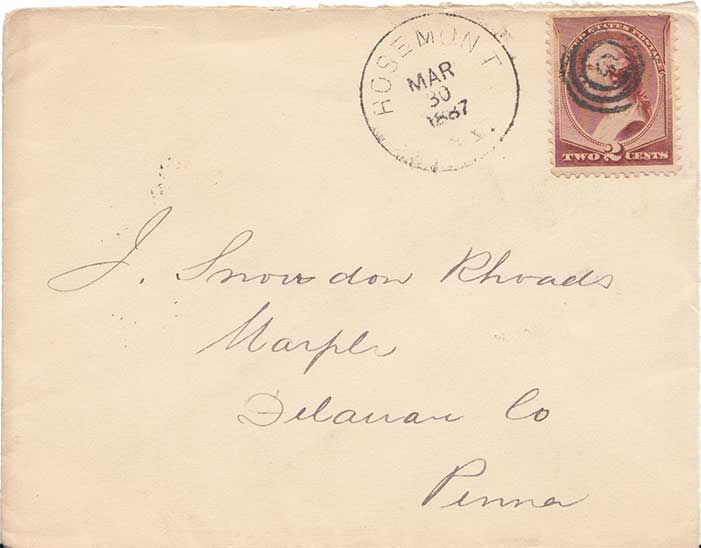 ROSEMONT
MAR
30
1887
UNITED STATES POSTAGE
TWO 2 CENTS
J. Snowdon Rhoads
Marple
Delaware Co
Penna